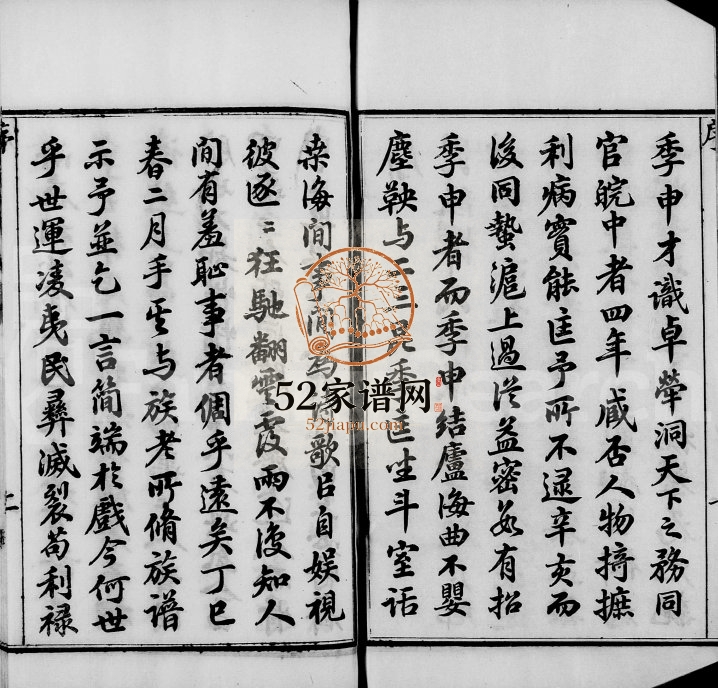 季申才識卓犖洞天下之務同
官皖中者四年臧否人物掎摭
利病實能匡予所不逮辛亥而
後同蟄滬上過從益密有招
季申者而季申結廬海曲不嬰
塵鞅与二三昆季匡坐斗室話
桒海間事間為詩歌以自娱視
彼逐〻狂馳翻雲覆雨不復知人
間有羞恥事者倜乎遠矣丁巳
春二月手其与族老所脩族譜
示予並乞一言簡端於戲今何世
乎世運凌夷民彝滅裂苟利禄
52家谱网
52jiapu.com